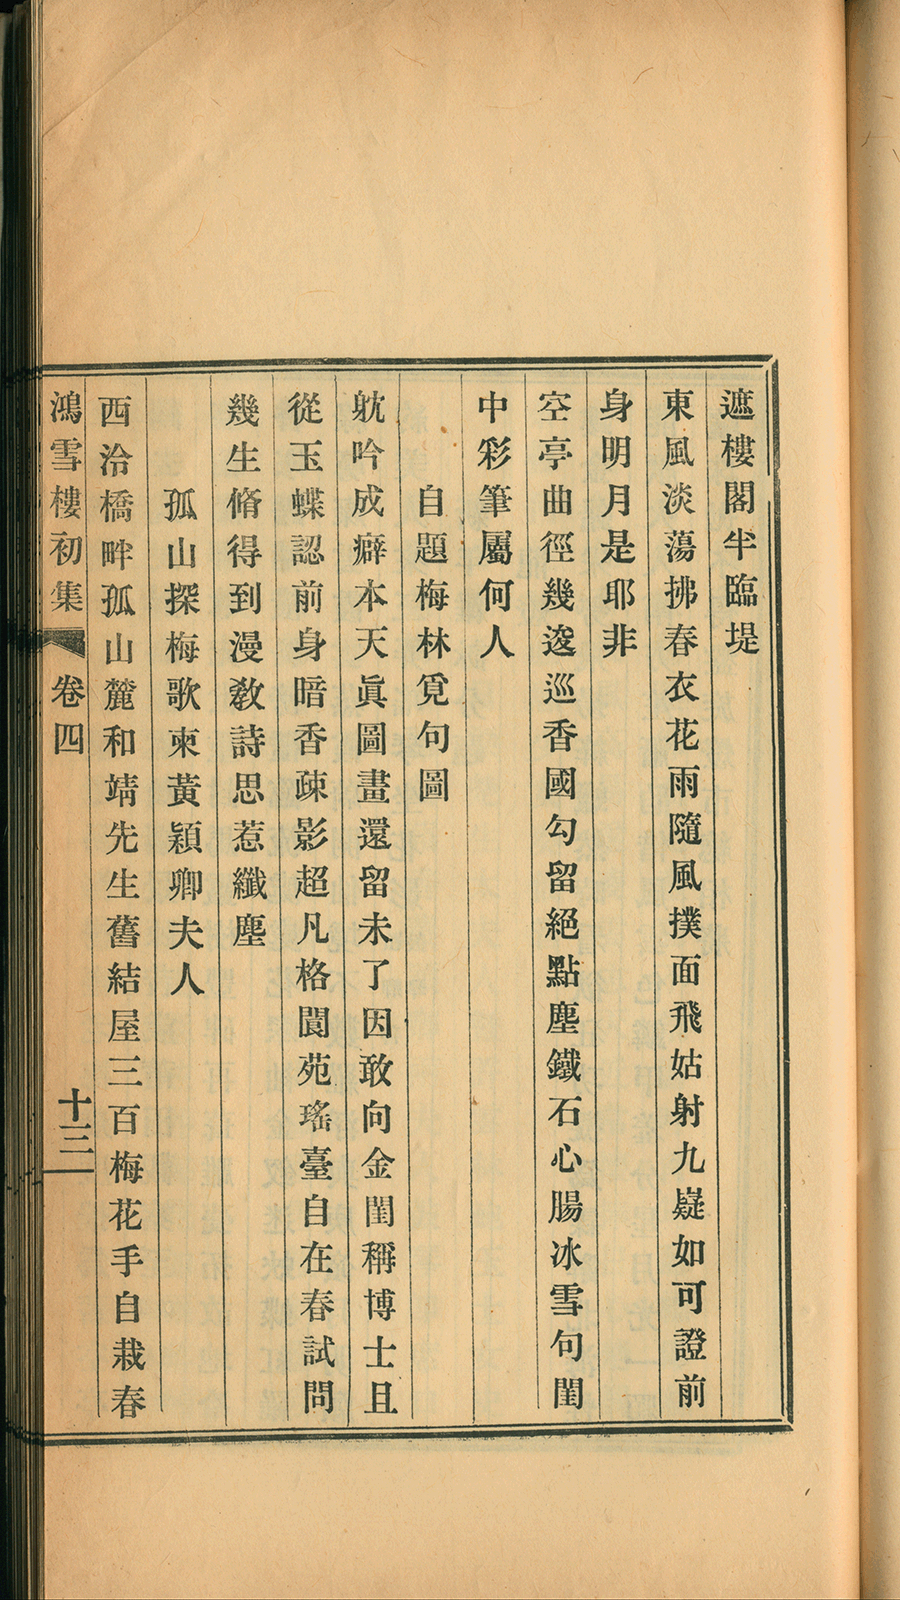 遮樓閣半臨堤
東風淡蕩拂春衣花雨隨風撲面飛姑射九嶷如可證前
身明月是耶非
空亭曲徑幾逡巡香國勾留絕點塵鐵石心腸冰雪句閨
中彩筆屬何人
自題梅林覓句圖
躭吟成癖本天眞圖畫還留未了因敢向金閨稱博士且
從玉蝶認前身暗香疎影超凡格閬苑瑤臺自在春試問
幾生脩得到漫敎詩思惹纖塵
孤山探梅歌柬黃穎卿夫人
西泠橋畔孤山麓和靖先生舊結屋三百梅花手自栽春
鴻雪樓初集 卷四 十三